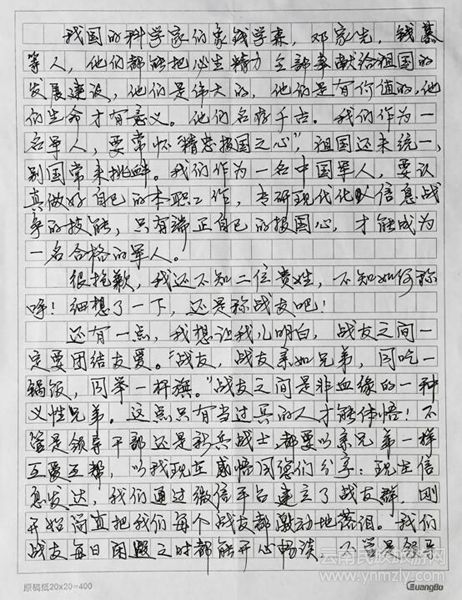 我国的科学家们象钱学森，邓家先，钱慕
等人，他们都能把必生精力全部奉献给祖国的
发展建设，他们是伟大的，他们是有价值的，他
们生命才有意义。他们名扬千古。我们作为一
名军人，要常怀“精忠报国之心”，祖国还未统一，
别国常来挑衅。我们作为一名中国军人，要认
真做好自己的本职工作，专研现代化以信息战
争的技能，只有端正自己的报国心，才能成为
一名合格的军人。
很抱歉，我还不知二位贵姓，不知如何称
呼！细想了一下，还是称战友吧！
还有一点，我想让我儿明白，战友之间一
定要团结友爱。“战友，战友亲如兄弟，同吃一
锅饭，同举一杆旗。”战友之间是非血缘的一种
义性兄弟。这点只有当过兵的人才能体悟！不
管是领导干部还是新兵战士，都要以亲兄弟一样
互爱互帮，以我现在感悟同您们分享：现在信
息发达，我们通过微信平台建立了战友群，刚
开始简直把我们每个战友都激动地落泪。我们
战友每日闲暇之时都能开心畅谈，不管是领导
原稿纸20×20=400
GuangBo
云南民族文化网
www.ynmzly.com